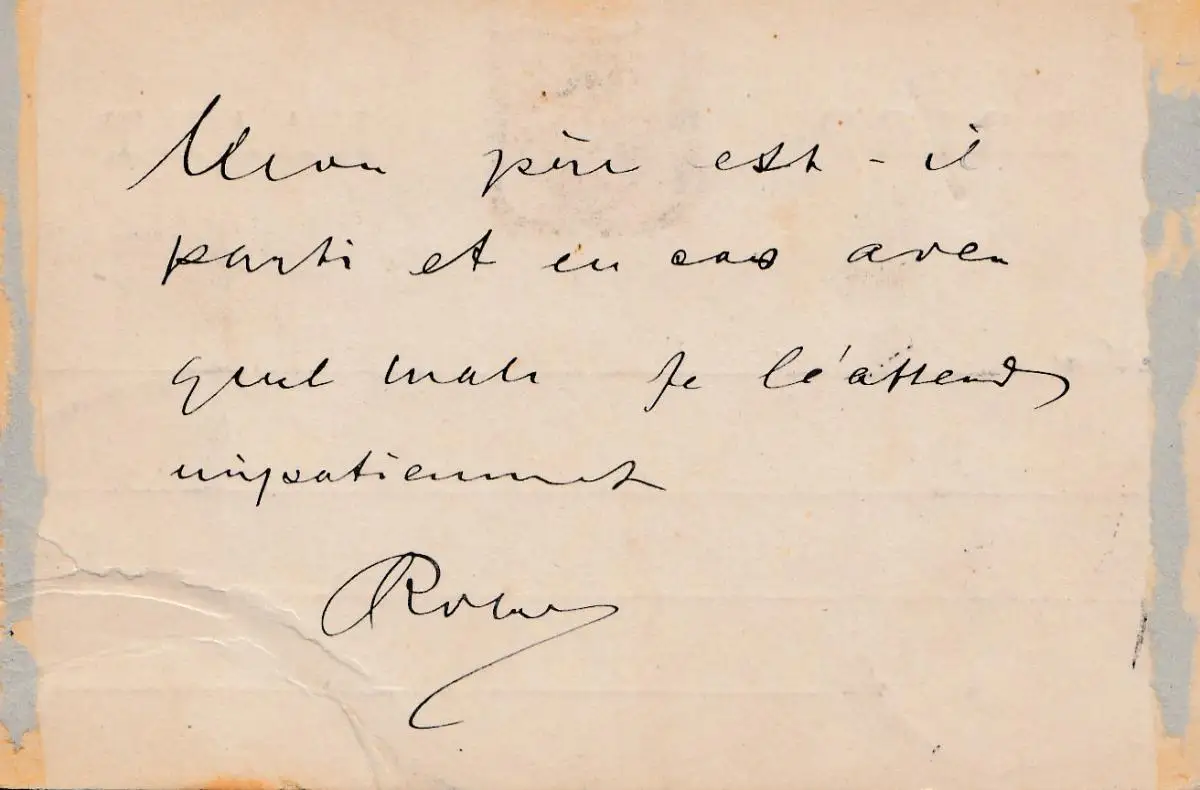 Mon père est-il
parti et en cas avec
quel male Je l'attends
impatiemmet